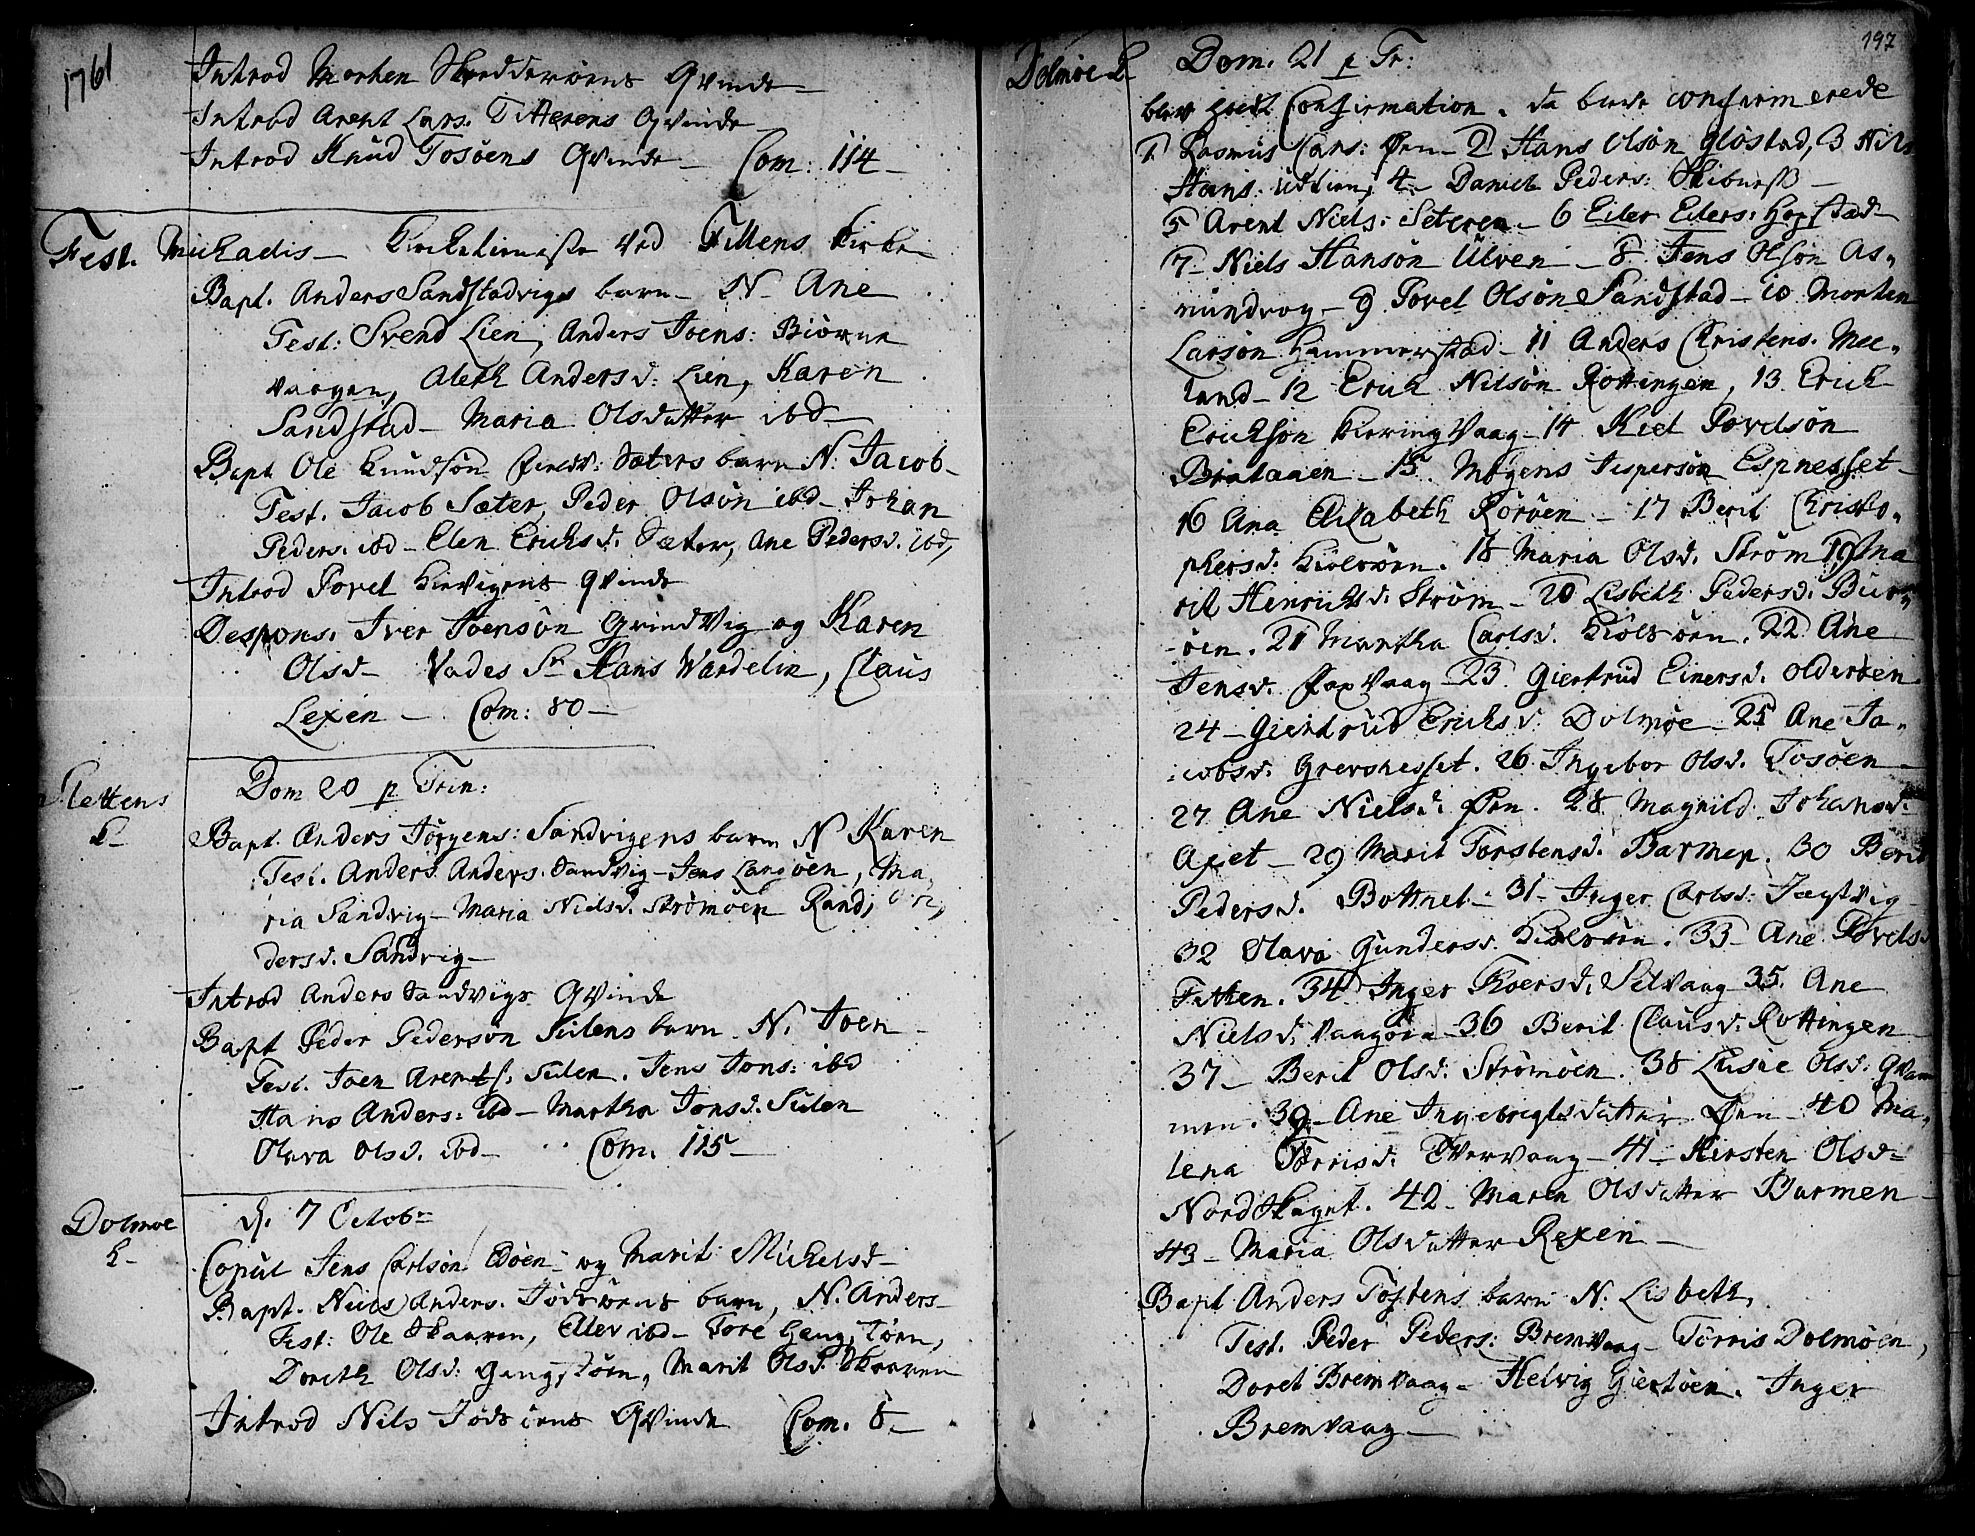 1761
Introd Morten Skredderøens Qvinde
Introd Arent Lars. Titterens Qvinde
Introd Knud Tosøens Qvinde Com: 114
Fest. Michaelis Ved Fillens Kirke
Bapt. Anders Sandstadvigs barn N Ane
Test: Svend Lien, Anders Joens: Biørne
vaagen, Aleth Anders d: Lien, Karen
Sandstad Maria Olsdatter ibd
Bapt Ole Knudsøn Sæters barn N: Jacob
Test. Jacob Sæter, Peder Olsøn ibd Johan
Peders. ibd Elen Erichs d. Sæter, Ane Peders d. ibd,
Introd Povel Qvinde
Despons. Iver Joensøn GrindVig og Karen
Olsd Vades Sr Hans Wardelin, Claus
Lexen Com: 80
Slettens
K
Dom 20 p Trin:
Bapt. Anders Jørgens: Sandvigens barn N Karen
Test. Anders Anders. Sandvig Jens Langøen, Ma
ria Sandvig Maria Niels d. Strømøen Randi
ders d. Sandvig
Introd Anders Sandvigs Qvinde
Bapt Peder Pedersøn Sulens barn N. Joen
Test. Joen Arents. Sulen. Jens Jons: ibd
Hans Anders: ibd Martha Jons d. Sulen
Olava Ols d. ibd Com. 115
Dolmøe
K
d. 7 Octobr
Copul Jens Carlsøn Edøen og Marit Michelsd
Bapt. Niels Anders. barn, N. Anders
Test: Ole Skaaren, Eller ibd Tore
Doreth Ols d: Marit Ols d. Skaaren
Introd Nils Qvinde Com. 8
197
Dolmøe K
Dom. 21 p Tr:
blev holdt Confirmation. da bleve confirmerede
1. Rasmus Lars: Øen 2 Hans Olsøn Gløstad, 3 Nils
Hans. Udtian, 4 Daniel Peders:
5 Arent Niels: Seteren 6 Eiler Eilers: Hopstad
7 Niels Hansøn Ulven 8 Jens Olsøn As,
mundvog 9 Povel Olsøn Sandstad 10 Morten
Larsøn Hammerstad 11 Anders Christens. Mee,
land 12 Erich Nilsøn Rottingen, 13 Erich
Erichsøn KieringVaag 14 Kiel Povelsøn
Brataaen 15. Mogens Jespersøn Espnesset
16 Ana Elisabeth Rorøen 17 Berit Christo,
phers d. 18 Maria Ols d. Strøm 19 Ma
rit Henrichs d. Strøm 20 Lisbeth Peders d. Bur,
øen. 21 Martha Carls d. 22 Ane
Jens d. Vaag 23 Giertrud Einers d. Olderøen
24 Giertrud Erichs d. Dolmøe 25 Ane Ja,
cobs d. Grevsnesset. 26 Ingebor Ols d. Tosøen
27 Ane Niels d. Øen. 28 Magnild Johans d.
Axet 29 Marit Torstens d. Barmen. 30 Berit
Peders d. Bottnet 31 Inger Carls d: Jægtvig
32 Olava Gunders d. 33 Ane Povels d
Futten. 34 Inger d. Selvaag 35. Ane
Niels d. Vaagøen 36 Berit Claus d. Rottingen
37 Berit Ols d: Strømøen. 38 Lusie Ols d: Qvam
men. 39 Ane Ingebrigtsdatter Øen 40 Ma,
lena Tørris d. Vaag 41 Kirsten Olsd
NordSkaget. 42 Maren Olsdatter Barmen
43 Maria Olsdatter Rexen
Bapt Anders Tostens barn N. Lisbeth,
Test. Peder Peders: BremVaag Tørris Dolmøen,
Doret BremVaag Helvig Giestøen. Inger
BremVaag